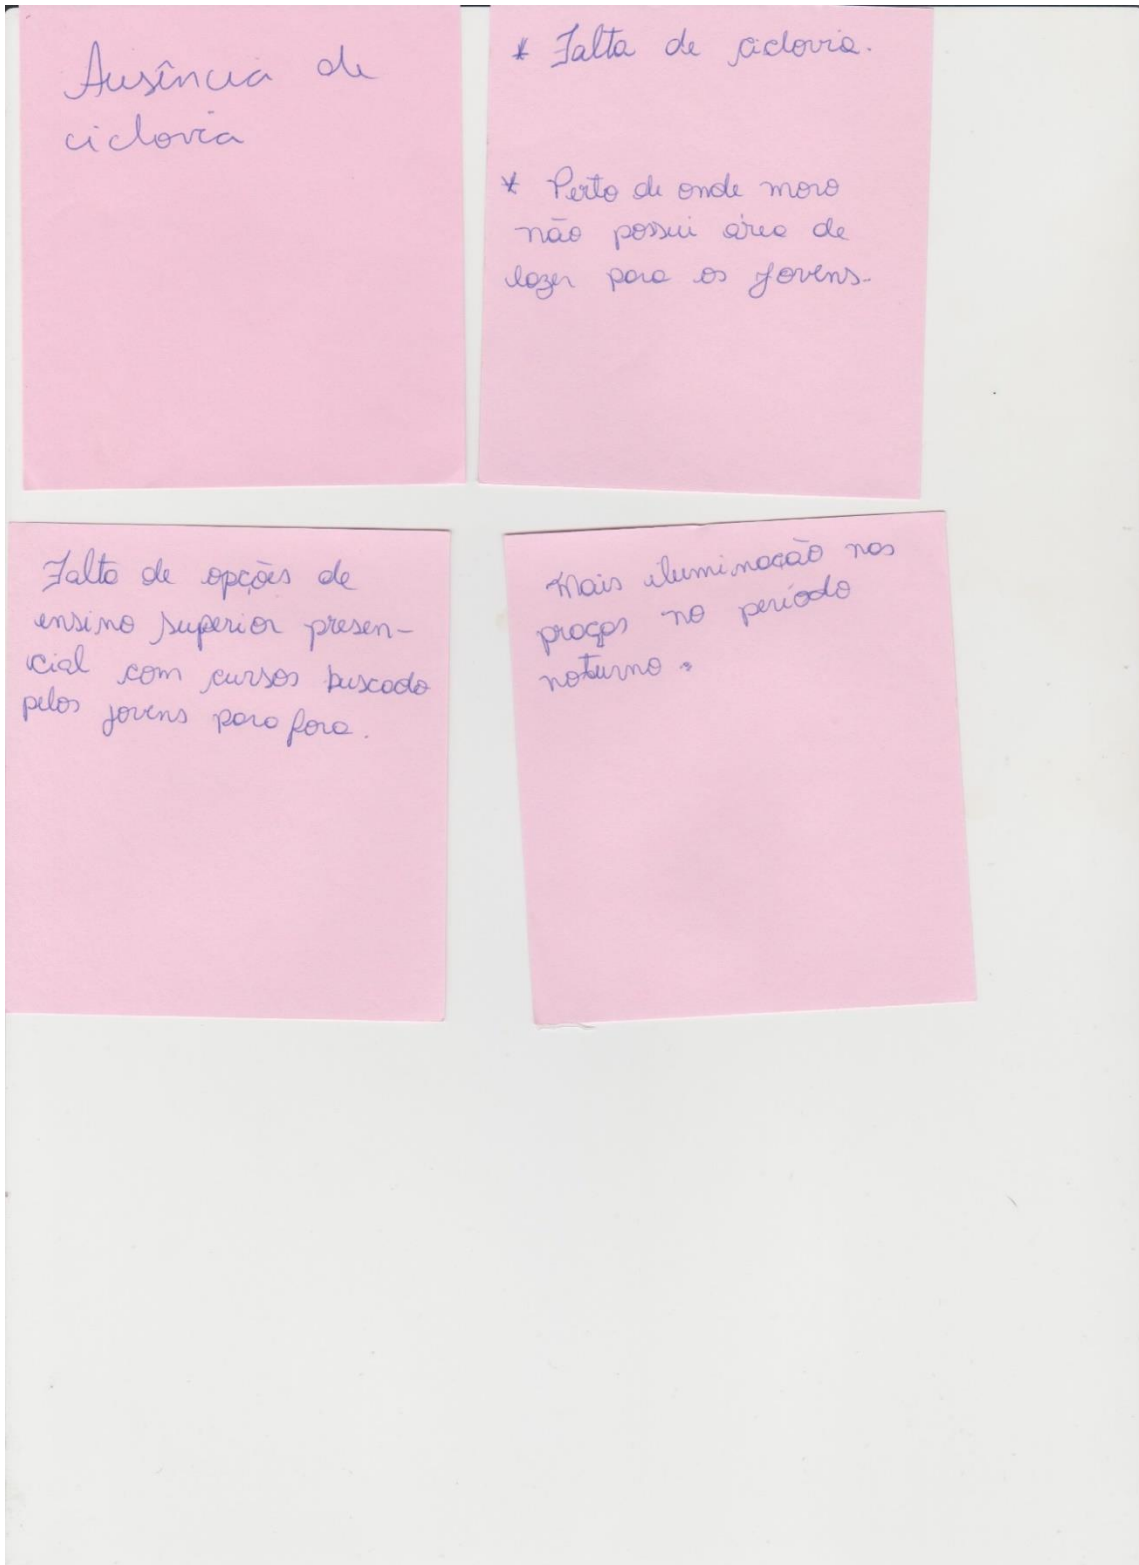 Ausência de
ciclovia
* Falta de ciclovia.
* Perto de onde moro
não possui área de
lazer para os jovens.
Falta de opções de
ensino superior presen-
cial com cursos buscado
pelos jovens para fora.
Mais iluminação nas
praças no período
noturno.